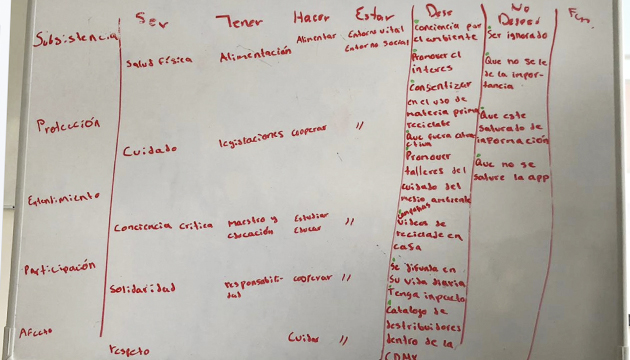 Ser Tener Hacer Estar Dese No
Deseo
Subsistencia
Salud física
Alimentación
Alimentar
Entorno vital
Entorno social
conciencia por
el ambiente
Promover el
interes
Consentizar
en el uso de
materia prima
reciclate
Que fuera
Promover
talleres del
cuidado del
medio ambiente
videos de
reciclade en
casa
Se difunda en
su vida diaria
Tenga impacto
Catalogo de
destribuidores
dentro de la
CDMX
Ser ignorado
Que no se le
de la impor-
tancia
Que este
saturado de
información
Que no se
sature la app
Protección
Cuidado
legislaciones
cooperar
"
Entendimiento
Conciencia critica
Maestro y
educación
Estudiar
Educar
"
Participación
Solidaridad
responsabili-
dad
cooperar
"
Afecto
respeto
Cuidar
"